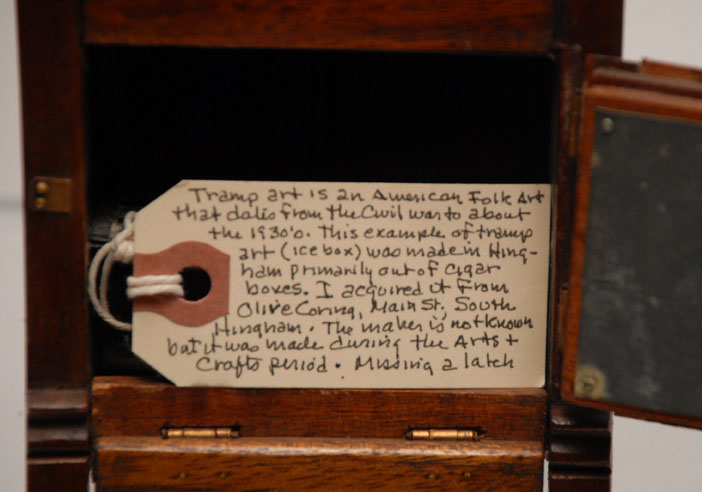 Tramp art is an American Folk Art
that dates from the Civil war to about
the 1930's. This example of tramp
art (ice box) was made in Hing-
ham primarily out of cigar
boxes. I acquired it from
Olive Coring, Main St., South
Hingham. The maker is not known
but it was made during the Arts +
Crafts period. Missing a latch